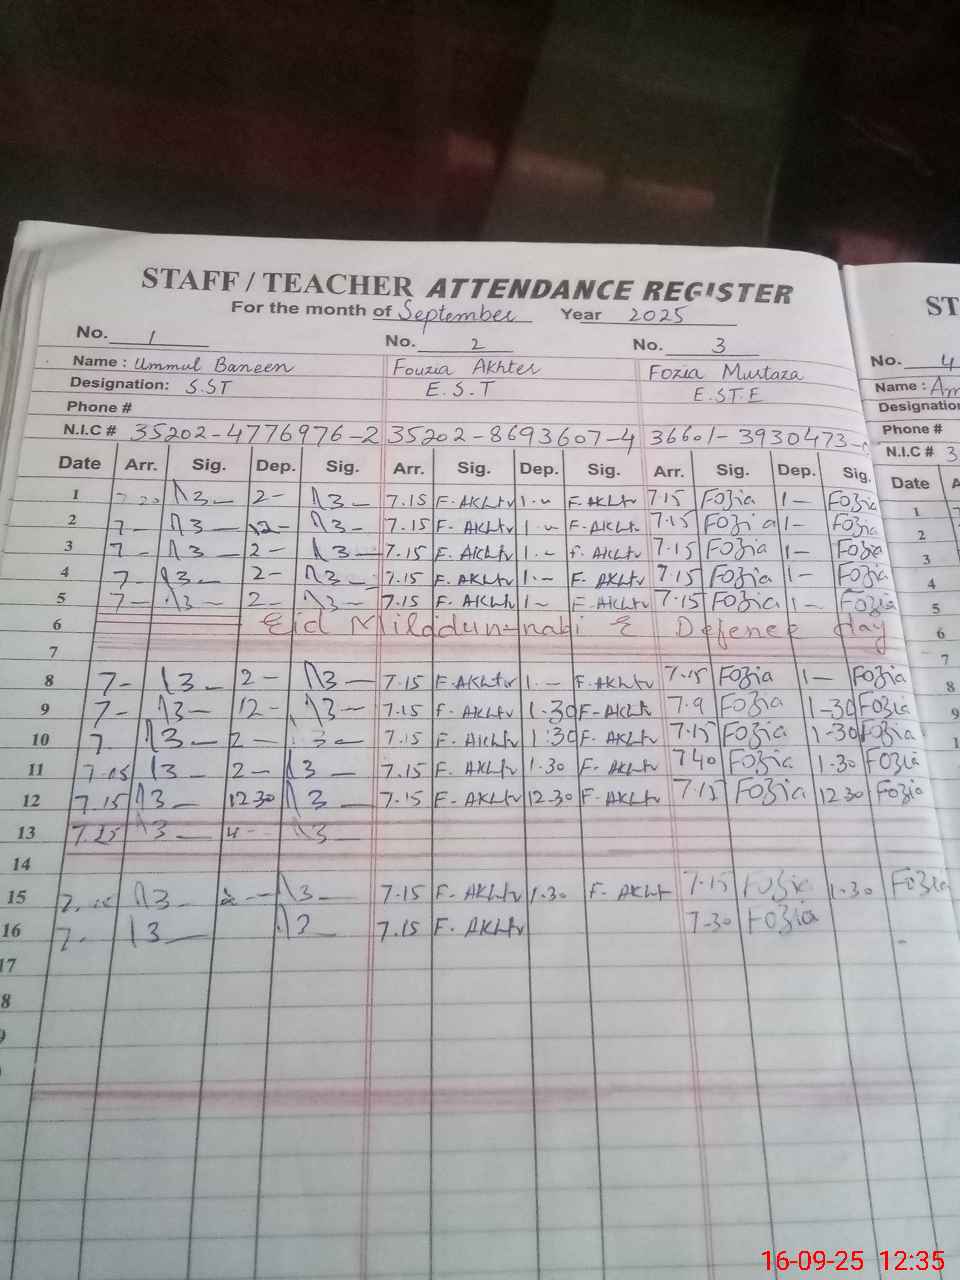 STAFF / TEACHER ATTENDANCE REGISTER
For the month of September Year 2025
No. 1 No. 2 No. 3
Name : Ummul Baneen Fouzia Akhter Fozia Murtaza
Designation: S.ST E.S.T E.ST.E
Phone #
N.I.C # 35202-4776976-2 35202-8693607-4 36601-3930473-
Date Arr. Sig. Dep. Sig. Arr. Sig. Dep. Sig. Arr. Sig. Dep. Sig.
1 2- 7.15 F. AKhtr 1.- F. AKhtr 7.15 Fozia 1- Fozia
2 7- 12- 7.15 F. AKhtr 1.- F. AKhtr 7.15 Fozia 1- Fozia
3 7- 2- 7.15 F. AKhtr 1.- F. AKhtr 7.15 Fozia 1- Fozia
4 7- 2- 7.15 F. AKhtr 1.- F. AKhtr 7.15 Fozia 1- Fozia
5 7- 2- 7.15 F. AKhtr 1- F. AKhtr 7.15 Fozia 1- Fozia
6 Eid Miladun-nabi & Defence day
7
8 7- 2- 7.15 F. AKhtr 1.- F. AKhtr 7.15 Fozia 1- Fozia
9 7- 12- 7.15 F. AKhtr 1.30 F. AKht 7.9 Fozia 1-30 Fozia
10 7. 2- 7.15 F. AKhtr 1.30 F. AKhtr 7.15 Fozia 1-30 Fozia
11 7.05 2- 7.15 F. AKhtr 1.30 F. AKhtr 7.40 Fozia 1.30 Fozia
12 7.15 12.30 7.15 F. AKhtr 12.30 F. AKhtr 7.15 Fozia 12.30 Fozia
13 7.25 4-
14
15 7.15 F. AKhtr 1.30 F. AKht 7.15 Fozia 1.30 Fozia
16 7- 7.15 F. AKhtr 7.30 Fozia
17
8
9
ST
No. 4
Name : Am
Designation
Phone #
N.I.C # 3
Date A
1
2
3
4
5
6
7
8
9
1
16-09-25 12:35